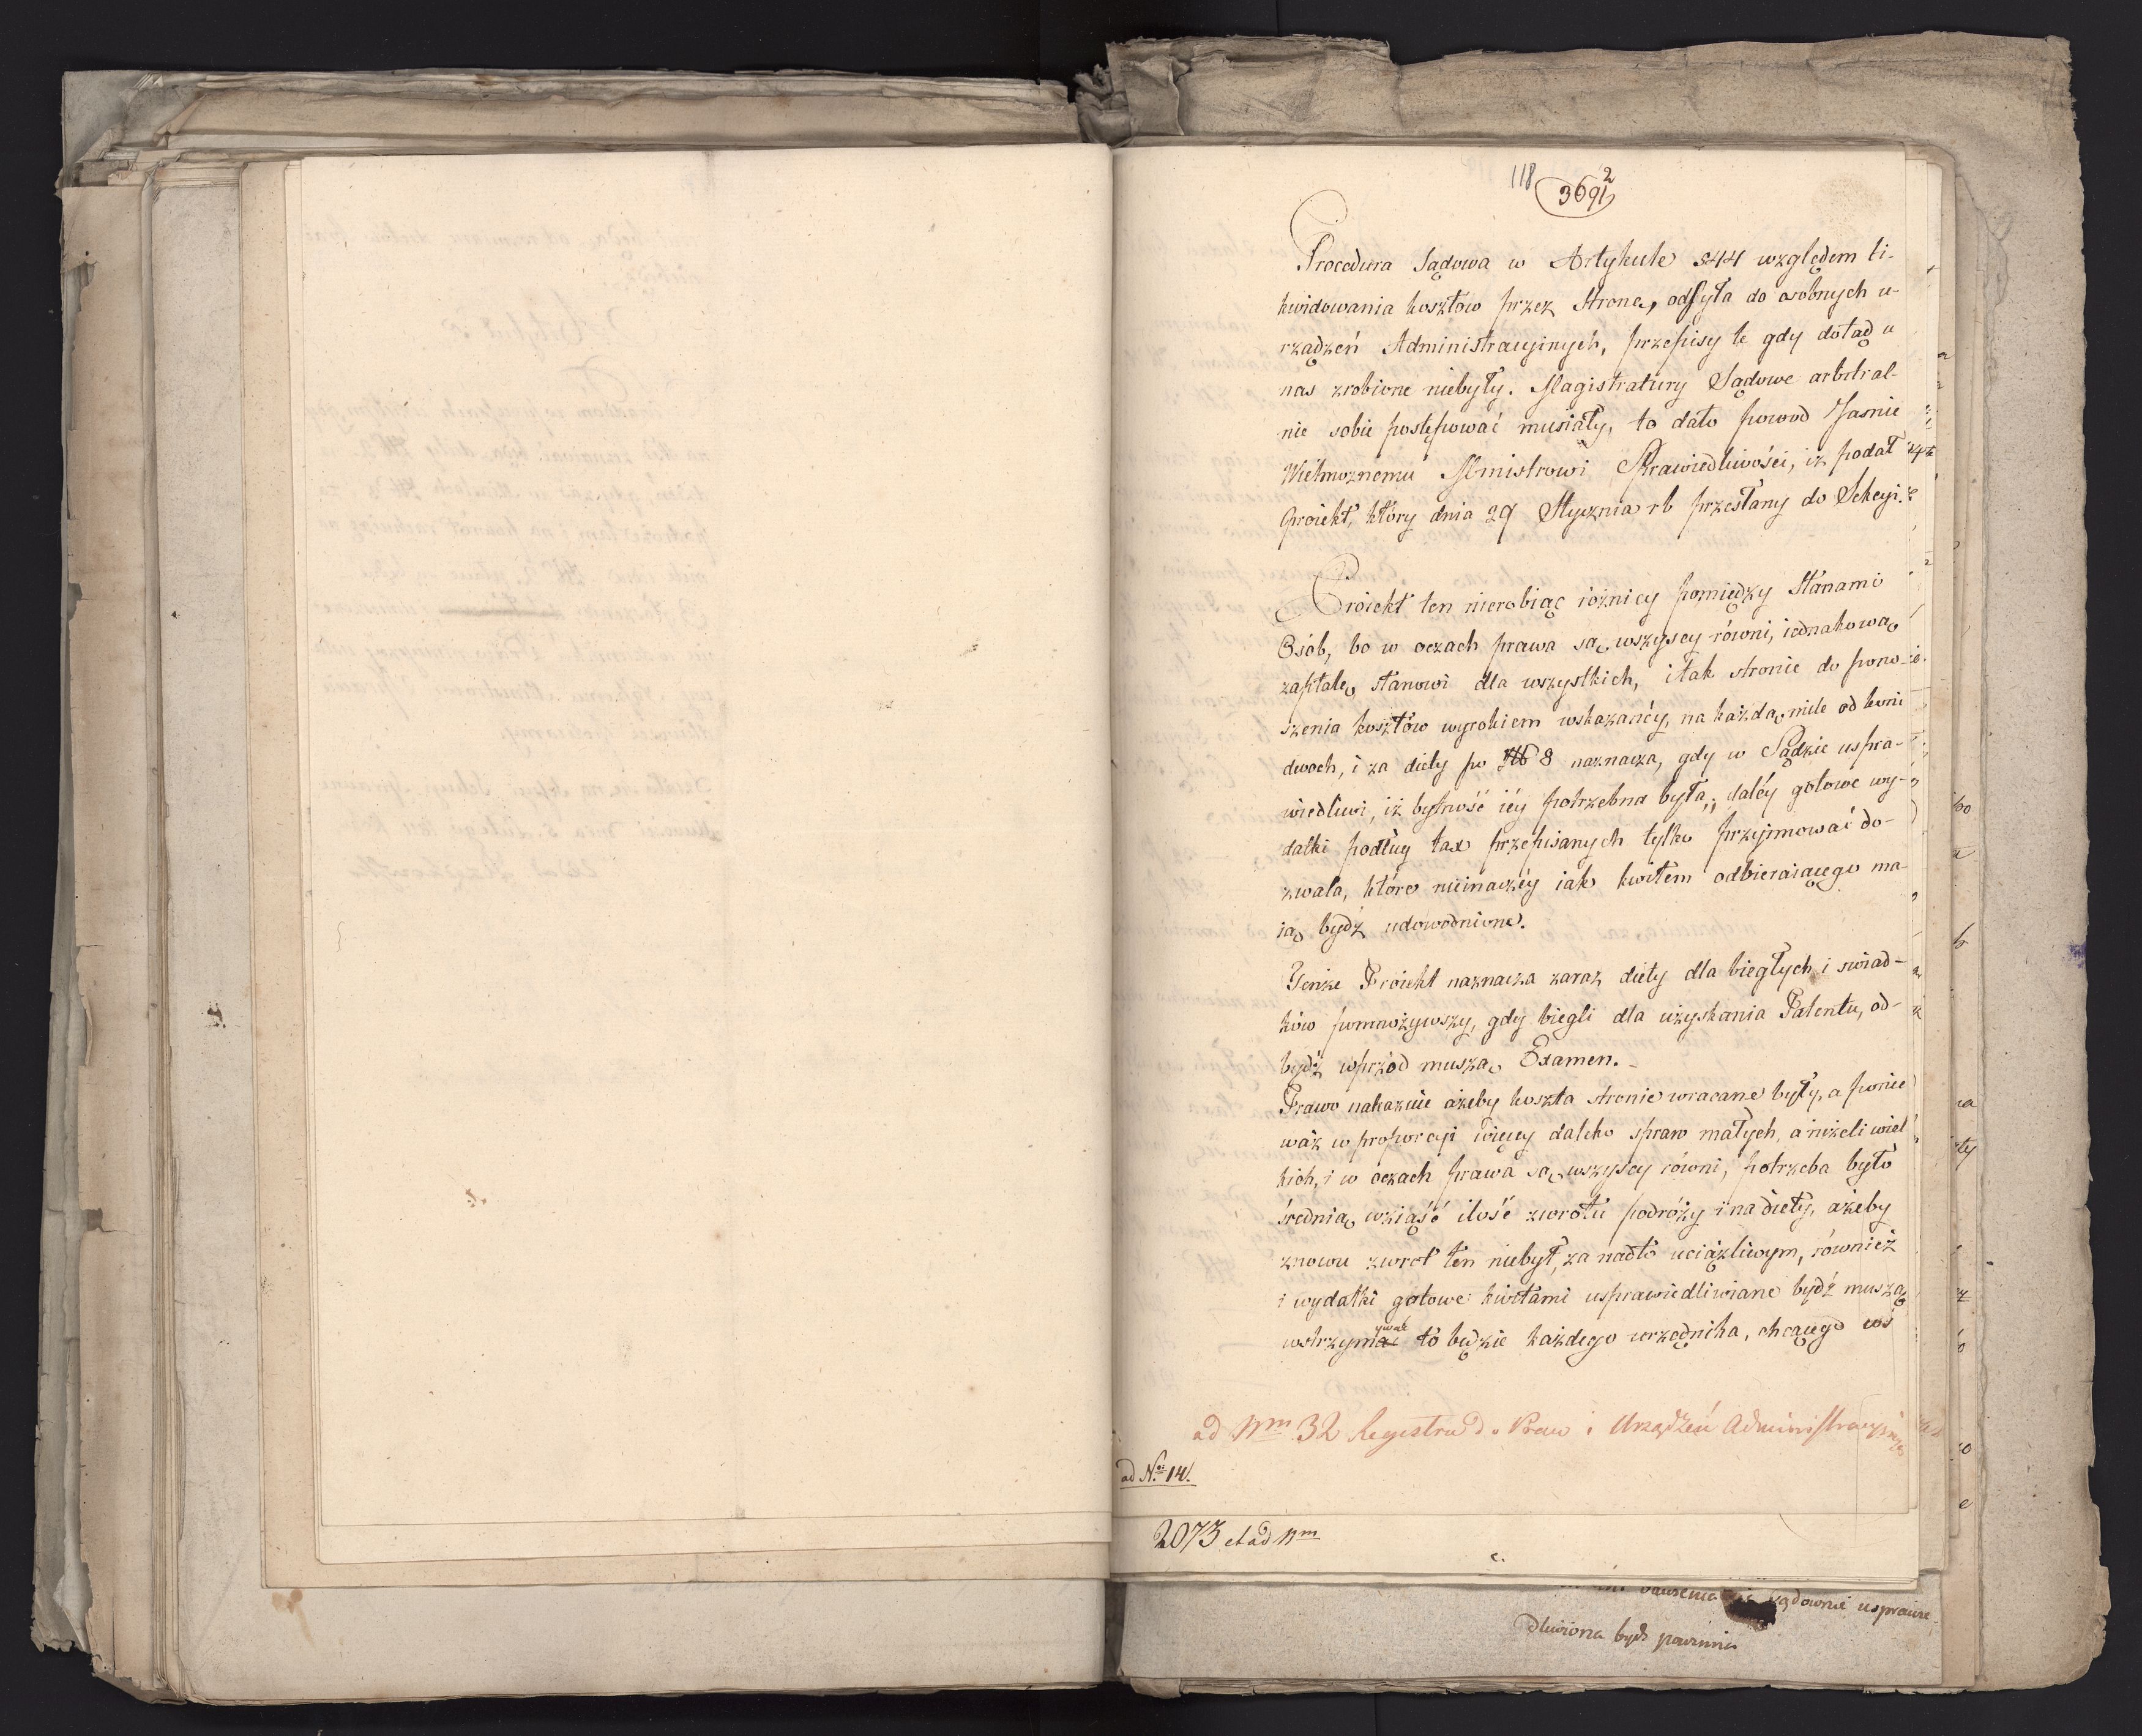 118
3691 2
Procedura Sądowa w Artykule 544 względem li-
kwidowania kosztów przez Stronę, odsyła do osobnych u-
rządzeń Administracyinych, przepisy te gdy dotąd u
nas zrobione niebyły. Magistratury Sądowe arbitral-
nie sobie postępować musiały, to dało powod Jasnie
Wielmoznemu Ministrowi Sprawiedliwości, iż podał
Proiekt, który dnia 29 Stycznia rb przesłany do Sekcyi.
Proiekt ten nierobiąc różnicy pomiędzy Stanami
Osób, bo w oczach prawa są wszyscy równi, iednakową
zapłatę stanowi dla wszystkich, i tak stronie do pono-
szenia kosztów wyrokiem wskazanéy, na każdą milę od koni
dwoch, i za diety po 8 naznacza, gdy w Sądzie uspra-
wiedliwi, iż bytność iéy potrzebna była; daléy gotowe wy-
datki podług tax przepisanych tylko przyjmować do-
zwala, które nieinaczéy iak kwitem odbieraiącego ma-
ią bydź udowodnione.
Tenże Proiekt naznacza zaraz diety dla biegłych i swiad-
ków pomnożywszy, gdy biegli dla uzyskania Patentu, od-
bydź wprzód muszą Examen.
Prawo nakazuie ażeby koszta stronie wracane były, a ponie
waż w proporcyi więcey daleko spraw małych, aniżeli wiel
kich, i w oczach prawa są wszyscy równi, potrzeba było
średnią wziąść ilość zwrotu podróży i na diety, ażeby
znowu zwrot ten niebył za nadto uciążliwym, również
i wydatki gotowe kwitami usprawiedliwiane bydź muszą
wstrzymywać to będzie każdego urzędnika, chcącego coś
ad Nrm 32 Registru do Praw i Urządzeń Administracyinych
ad No. 14.
2073 et ad Nrm
sądownie usprawie-
dliwiona bydź powinna